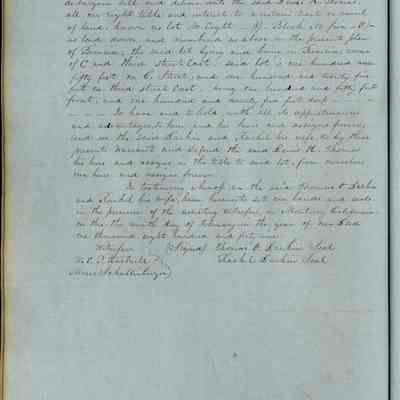 all our right title and interest to a certain lot or parcel
of land, known as lot No Eight 8, Block, No five - 5/-
as laid down and numbered as above on the present plan
of Benicia, the said lot lying and being in Benicia corner
of C and Third Street East, said lot is one hundred and
fifty feet on C. Street, and one hundred and twenty five
feet on Third Street East, being one hundred and fifty feet
front, and one hundred and twenty five feet deep
To have and to hold with all its appurtenances
and advantages, to him and his heirs and assigns forever,
and we the said Larkin and Rachel his wife, do by these
presents warrant and defend the said Lewis H. Thomas
his heirs and assigns in the title to said lot, from ourselves
our heirs and assigns forever.
In testimony whereof we the said Thomas O Larkin
and Rachel his wife, have hereunto set our hands and seals
in the presence of the assisting witnesses, in Monterey California
on this the ninth day of February in the year of our Lord
one thousand eight hundred and fifty one.
Witnesses (Signed) Thomas O. Larkin Seal
W. E. P. Hartnell Rachel Larkin Seal
Moses Schallenberger